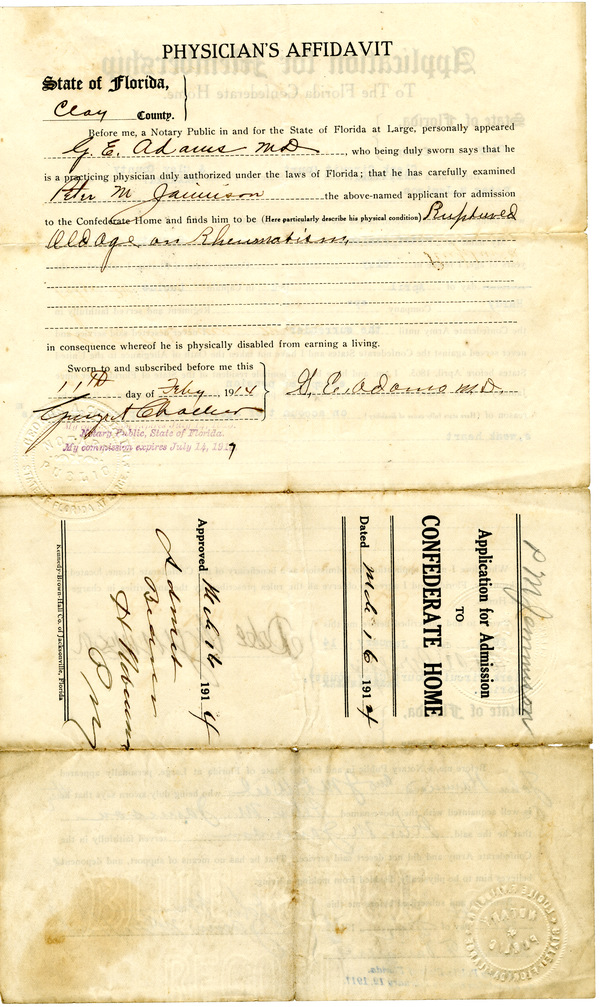 PHYSICIAN'S AFFIDAVIT
State of Florida,
Clay County.
Before me, a Notary Public in and for the State of Florida at Large, personally appeared
G. E. Adams MD, who being duly sworn says that he
is a practicing physician duly authorized under the laws of Florida; that he has carefully examined
Peter M Jaimison the above-named applicant for admission
to the Confederate Home and finds him to be (Here particularly describe his physical condition) Ruptured
Old Age an Rheumatism,
in consequence whereof he is physically disabled from earning a living.
Sworn to and subscribed before me this
11th day of Feby, 1914
G. E. Adams M.D.
Notary Public, State of Florida.
My commission expires July 14, 1917
P M Jammison
Application for Admission
TO
CONFEDERATE HOME
Dated Mch 16 1914
Approved Mch 16 1914
Admit
Kennedy-Brown-Hall Co. of Jacksonville, Florida
NOTARY
PUBLIC